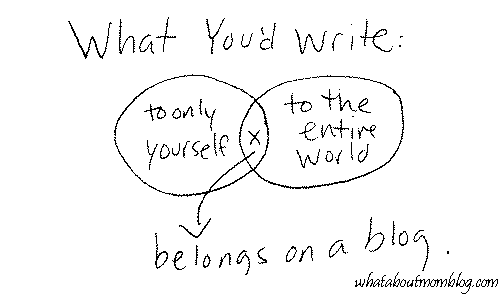 What You'd Write:
to only
yourself
x
to the
entire
world
belongs on a blog.
whataboutmomblog.com